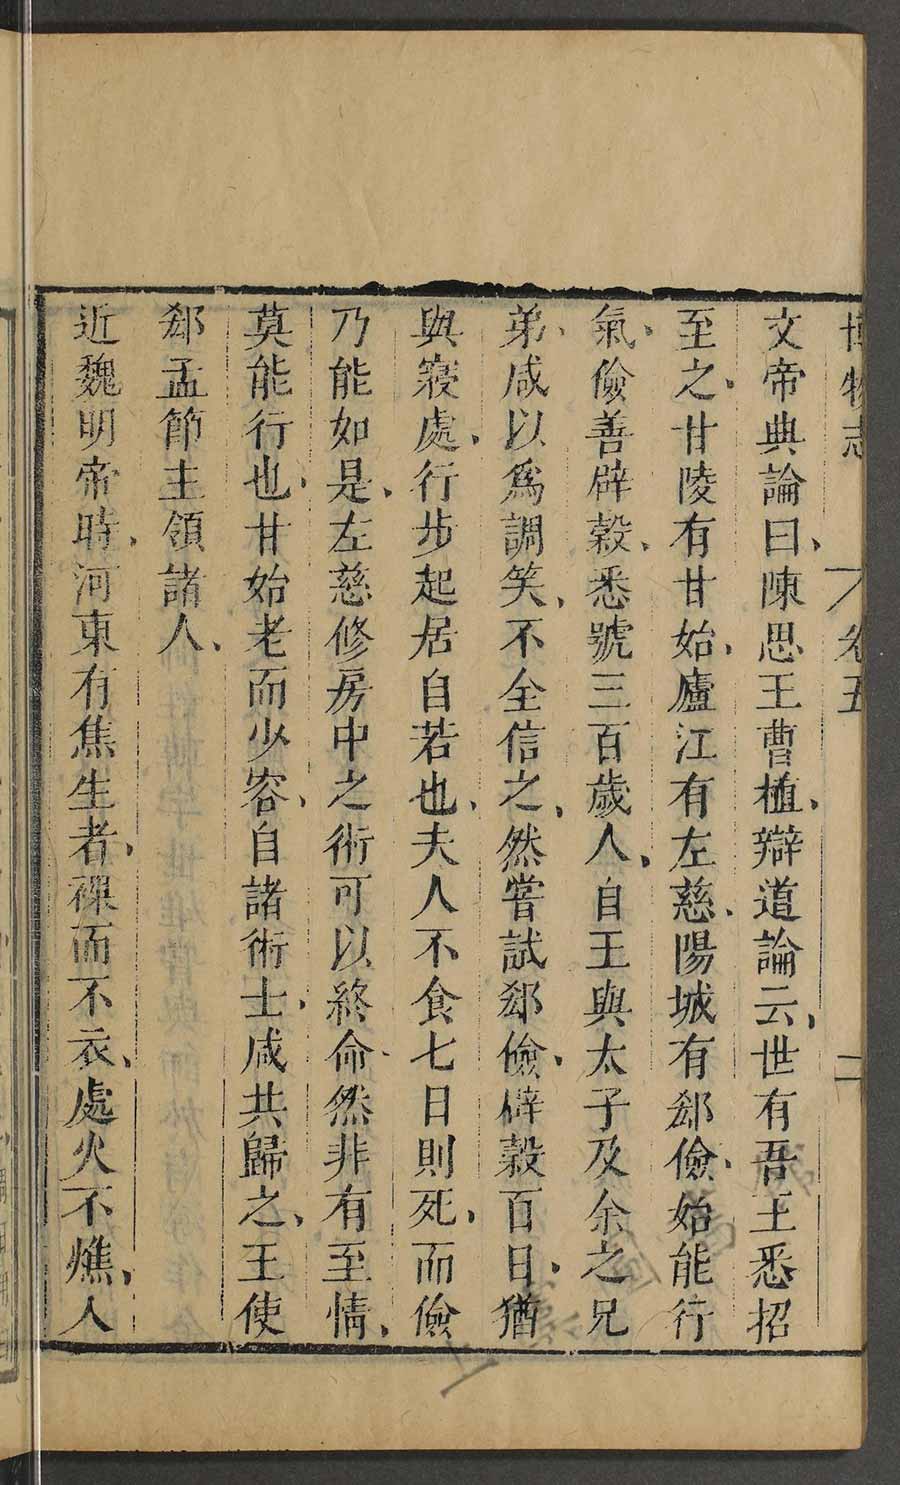 博物志 卷五 二
文帝典論曰、陳思王曹植、辯道論云、世有吾王悉招
至之、甘陵有甘始、廬江有左慈、陽城有郄儉、始能行
氣、儉善辟穀、悉號三百歲人、自王與太子及余之兄
弟、咸以爲調笑、不全信之、然嘗試郄儉、辟穀百日、猶
與寢處、行步起居自若也、夫人不食七日則死、而儉
乃能如是、左慈修房中之術可以終命、然非有至情、
莫能行也、甘始老而少容、自諸術士、咸共歸之、王使
郄孟節主領諸人、
近魏明帝時、河東有焦生者、裸而不衣、處火不燋、人